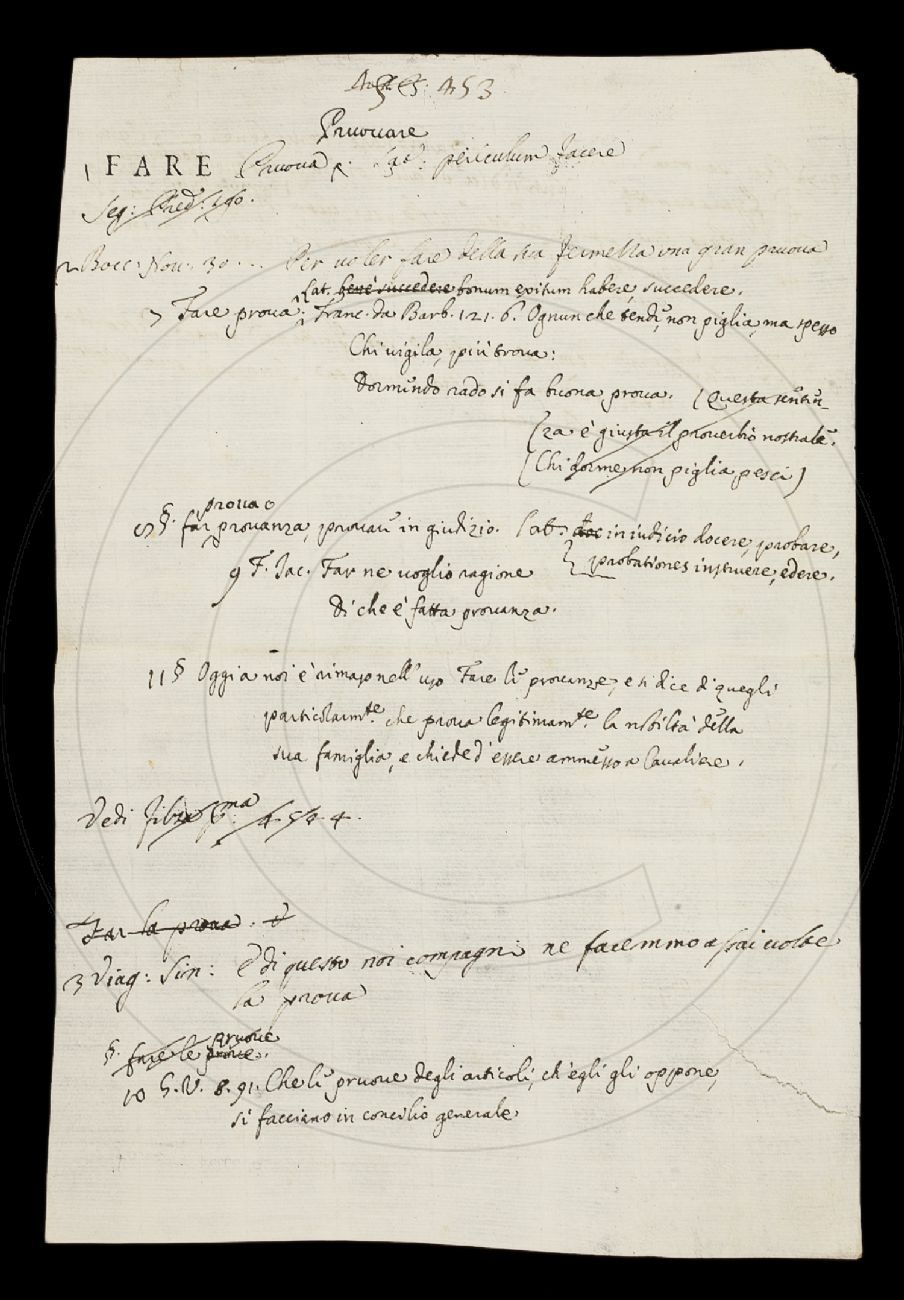 453
Pruovare
1 FARE Pruova. Lat: periculum facere
Seg: Pred: 140.
2 Bocc: Nov. 30... Per voler fare della sua fermezza una gran pruova
Lat. bene succedere bonum exitum habere, succedere.
7 Fare prova. Franc. da Barb. 121. 6. Ognun che tende, non piglia, ma spesso
Chi vigila, più trova:
Dormendo rado si fa buona prova. (Questa senten-
(za è giusta il proverbio nostrale.
(Chi dorme non piglia pesci)
prova o
8 §. far provanza, provare in giudizio. Lat. doc in iudicio docere, probare,
probationes instruere, edere.
9 F. Iac. Far ne voglio ragione
Di che è fatta provanza.
11 § Oggi a noi è rimaso nell'uso Fare le provanze, e si dice di quegli
particolarmte. che prova legitimamte. la nobiltà della
sua famiglia, e chiede d'essere ammesso a Cavaliere.
Vedi 4544.
Far la prova.
3 Viag: Sin: E di questo noi compagni ne facemmo assai volte
la prova
pruove
§. fare le prove.
10 G. V. 8. 91. Che le pruove degli articoli, ch'egli gli oppone,
si facciano in concilio generale